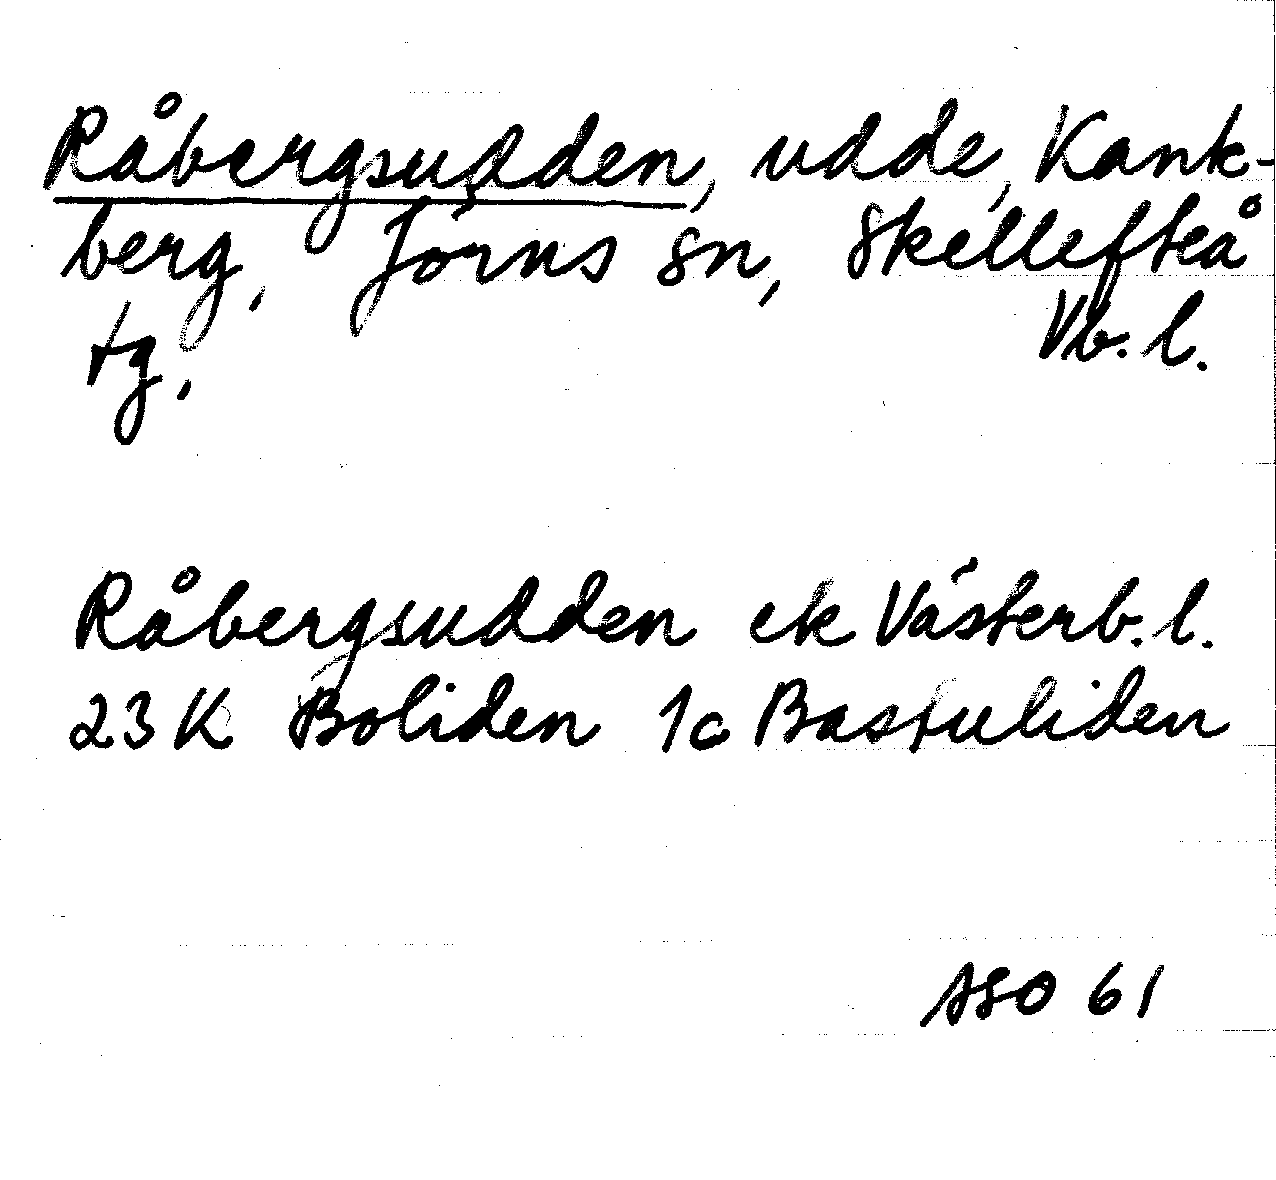 Råbergsudden, udde, Kank-
berg, Jörns sn, Skellefteå
tg, Vb. l.
Råbergsudden ek Västerb. l.
23 K Boliden 1c Bastuliden
ASO 61